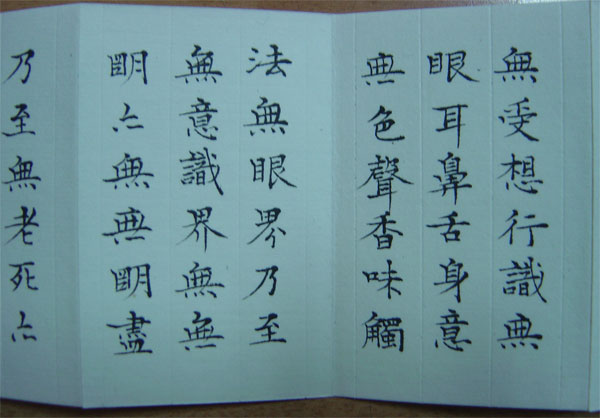 無受想行識無
眼耳鼻舌身意
無色聲香味觸
法無眼界乃至
無意識界無無
明亦無無明盡
乃至無老死亦